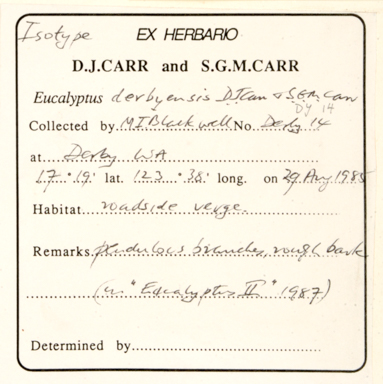 Isotype EX HERBARIO
D.J.CARR and S.G.M.CARR
Eucalyptus derbyensis D.J.Carr & S.G.M.Carr
DY 14
Collected by M I Blackwell No. Derby 14
at Derby WA
17 ° 19 ' lat. 123 ° 38 ' long. on 29 Aug 1985
Habitat roadside verge.
Remarks pendulous branches, rough bark
(in "Eucalyptus II" 1987)
Determined by